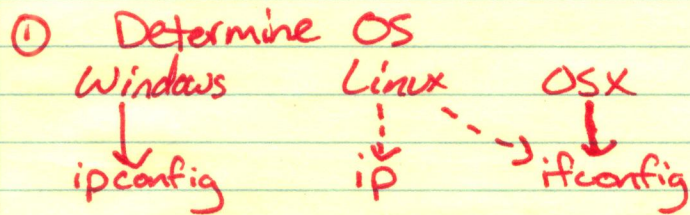 ① Determine OS
Windows Linux OSX
ipconfig ip ifconfig